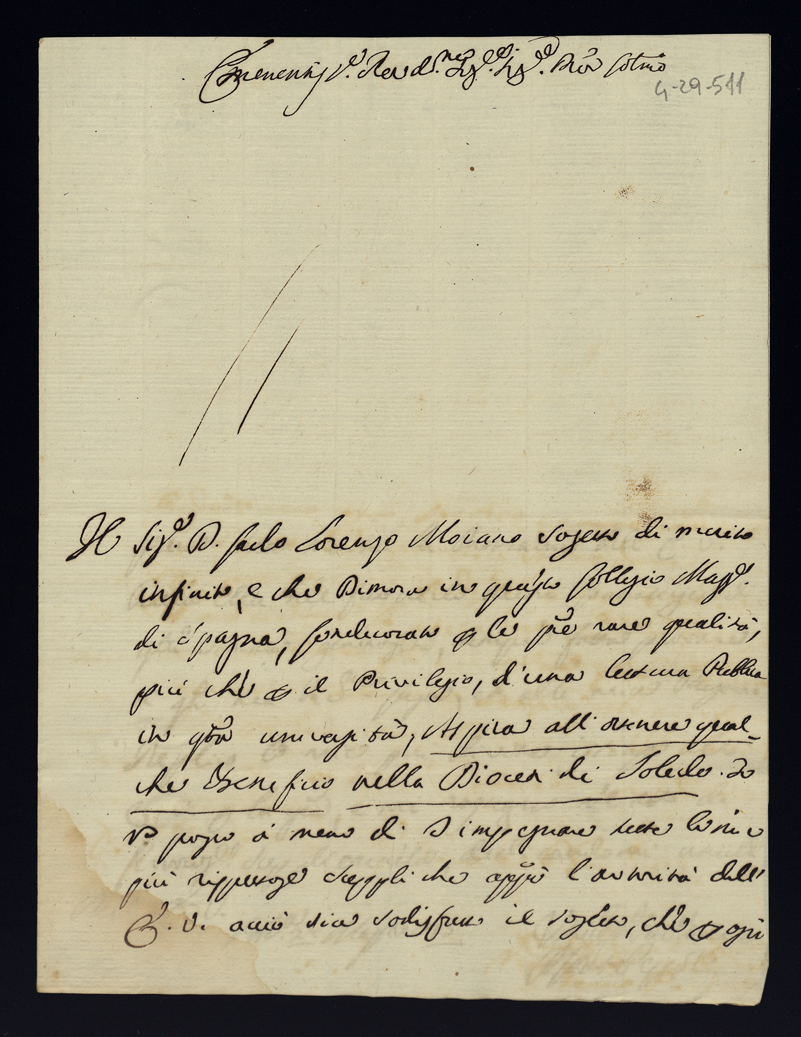 Eminentis.º e Rev.d.mo Sig.e Sig.e
4-29-511
Il Sig.e D. Paolo Lorenzo Moiano sogetto di merito
infinito, e che Dimora in questo Collegio Magg.e
di Spagna, condecorato le sue rare qualità,
più che il Privilegio, d'una lettura Publica
in qta università, Aspira all'ottenere qual-
che Beneficio nella Diocesi di Toledo. Io
nº posso à meno di d'impegnare tutte le mie
più suppliche l'autorità dell'
E. V. acciò sia sodisfatto il sogetto, che ogni